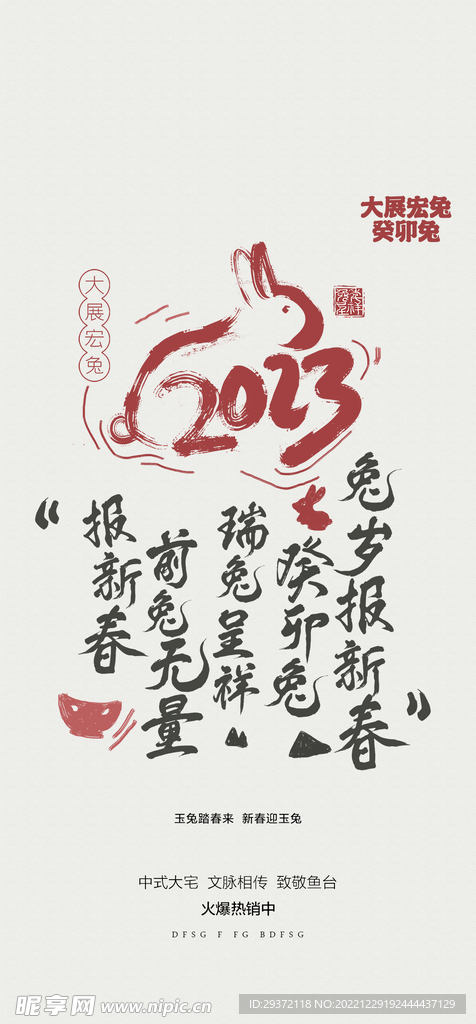 大展宏兔
癸卯兔
大展宏兔
2023
兔岁报新春
癸卯兔
瑞兔呈祥
前兔无量
报新春
玉兔踏春来 新春迎玉兔
中式大宅 文脉相传 致敬鱼台
火爆热销中
DFSG F FG BDFSG
昵享网 www.nipic.cn
ID:29372118 NO:20221229192444437129